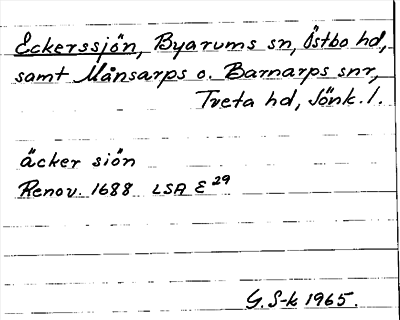 Eckerssjön, Byarums sn, Östbo hd,
samt Månsarps o. Barnarps snr,
Tveta hd, Jönk. l.
äcker siön
Renov. 1688 LSA E 29
G. S-k 1965.